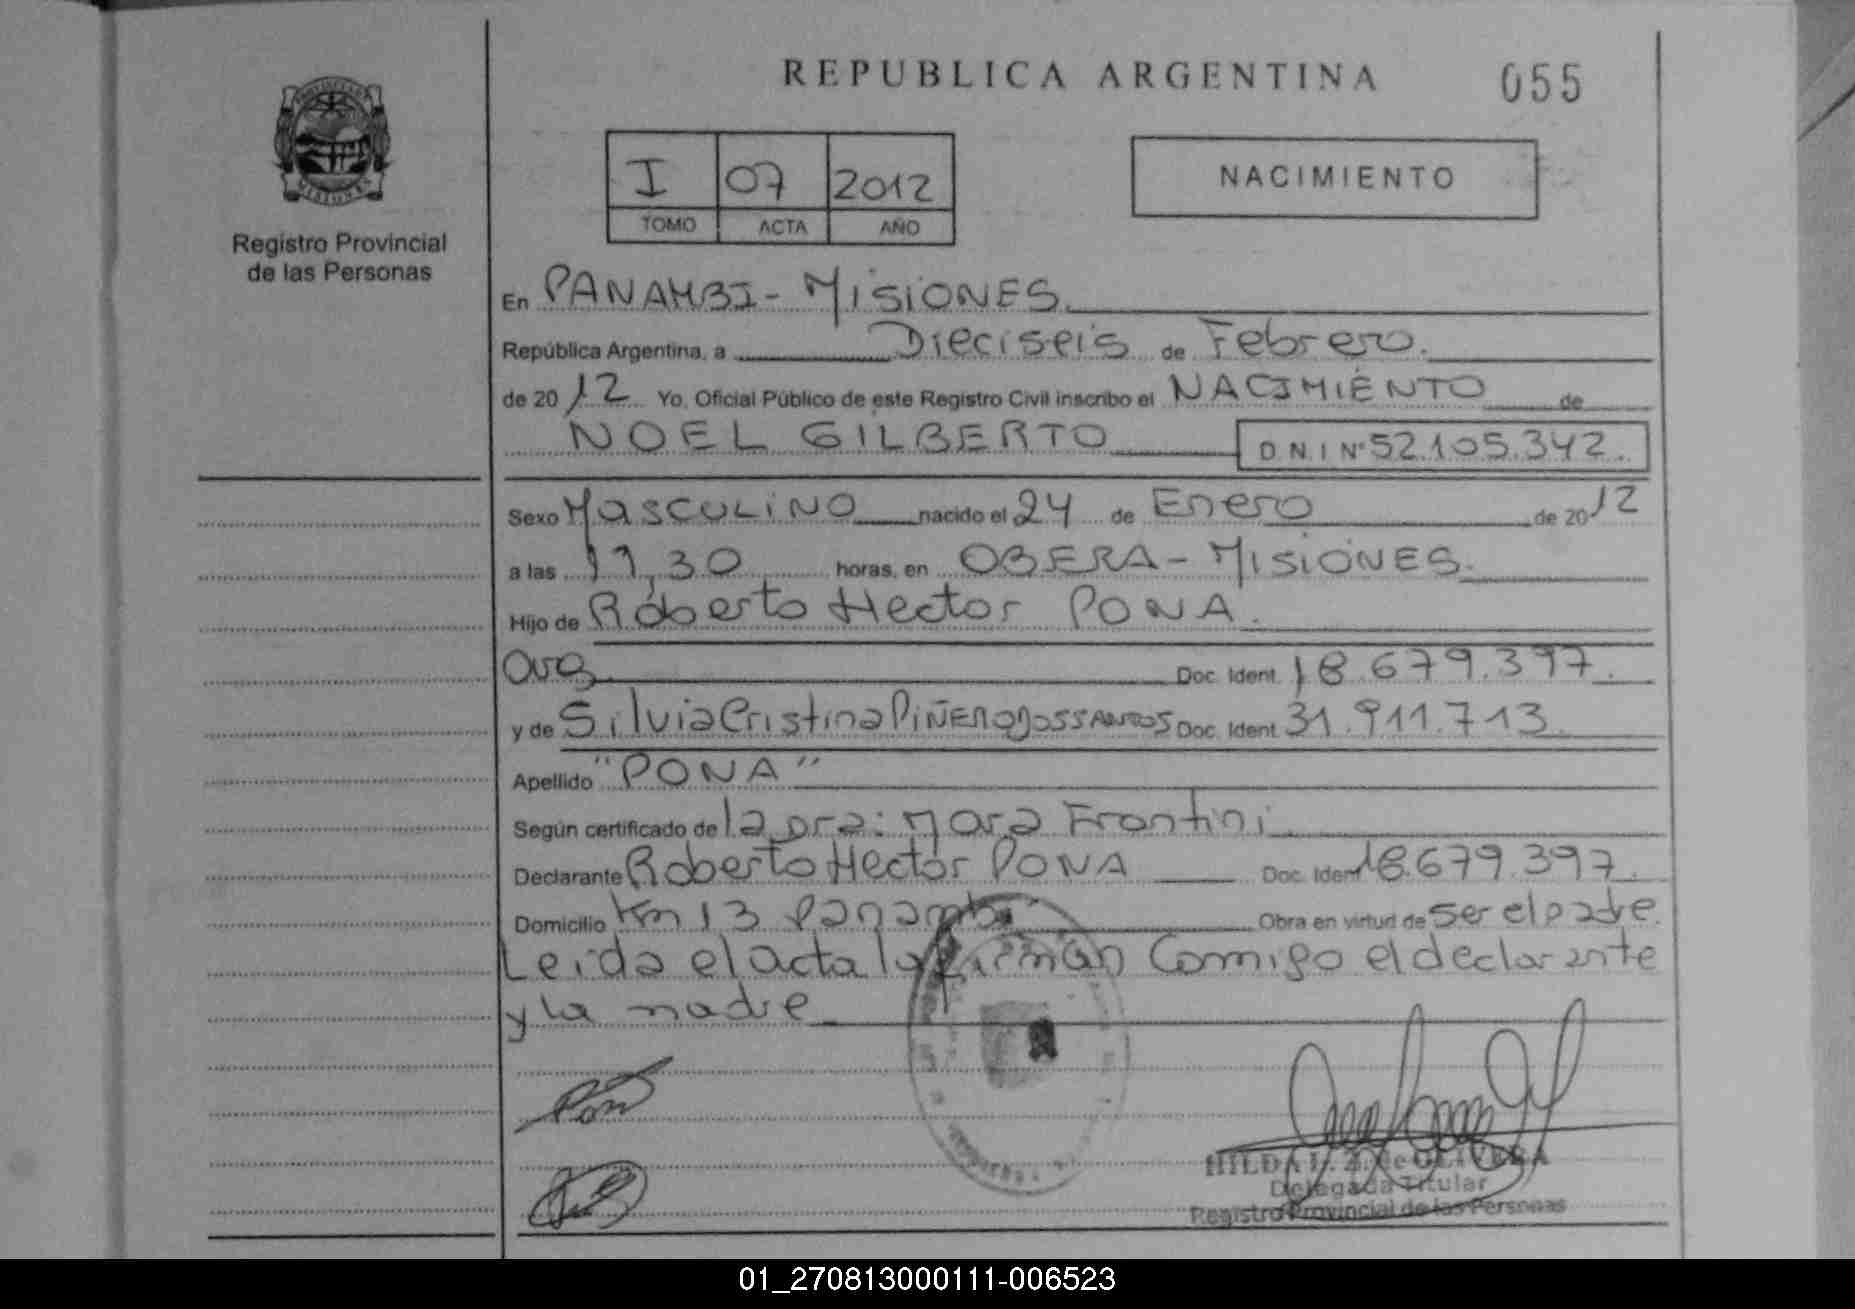 REPUBLICA ARGENTINA 055
I 07 2012
TOMO ACTA AÑO
NACIMIENTO
Registro Provincial
de las Personas
En PANAMBI - MISIONES.
República Argentina, a Dieciseis de Febrero.
de 2012 Yo, Oficial Público de este Registro Civil inscribo el NACIMIENTO de
NOEL GILBERTO D.N.I Nº 52.105.342.
Sexo MASCULINO nacido el 24 de Enero de 2012
a las 11,30 horas, en OBERA - MISIONES.
Hijo de Roberto Hector PONA.
Doc. Ident. 18.679.397.
y de Silvia Cristina PIÑERO DOSSANTOS Doc. Ident. 31.911.713.
Apellido "PONA"
Según certificado de la Dra: Mara Frontini
Declarante Roberto Hector PONA Doc. Ident 18.679.397.
Domicilio Km 13 Panambi Obra en virtud de ser el padre.
Leida el acta la firman Conmigo el declarante
y la madre
HILDA de OLIVERA
Delegada Titular
Registro Provincial de las Personas
01_270813000111-006523